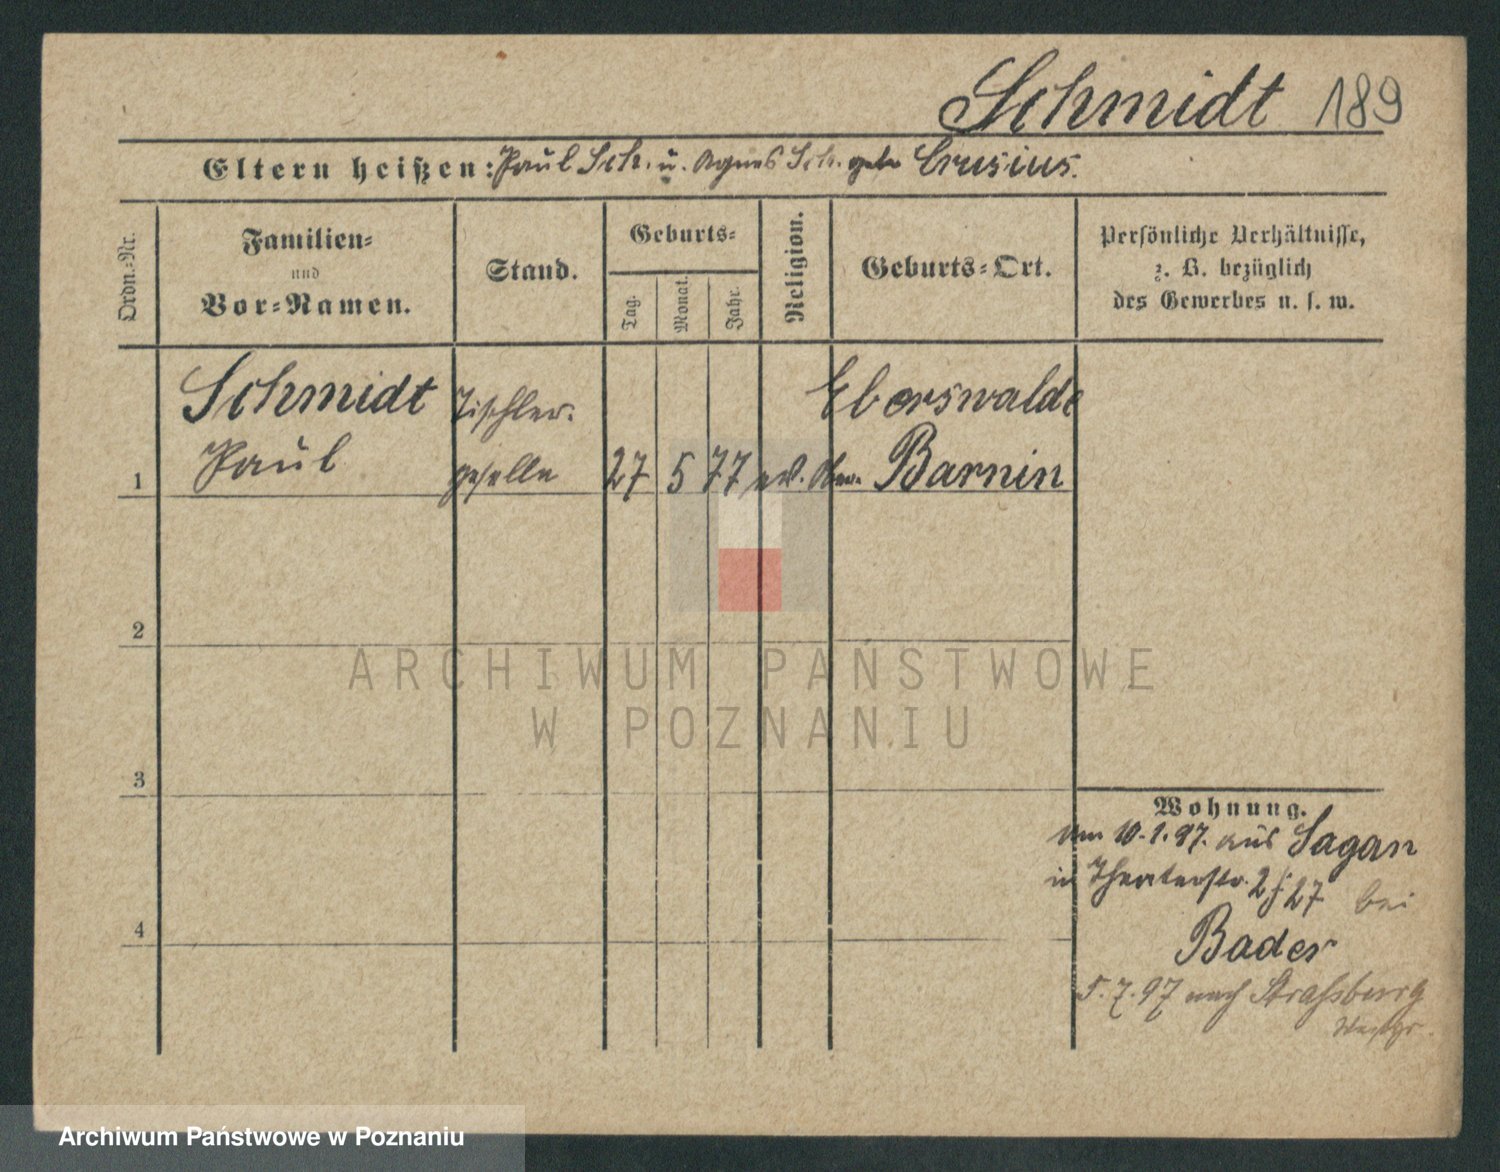 Schmidt 189
Eltern heißen: Paul Sch. u. Agnes Sch. geb. Crusius.
Ordn.-Nr.
Familien-
und
Vor-Namen.
Stand.
Geburts-
Tag.
Monat.
Jahr.
Religion.
Geburts-Ort.
Persönliche Verhältnisse,
z. B. bezüglich
des Gewerbes u. s. w.
Schmidt Tischler- Eberswalde
1 Paul geselle 27 5 77 ev. Barnin
2
3
4
Wohnung.
Am 10.1.97. aus Sagan
in Theaterstr. 2 27 bei
Bader
5.7.97 nach Straßburg
Westpr.
ARCHIWUM PAŃSTWOWE
W POZNANIU
Archiwum Państwowe w Poznaniu